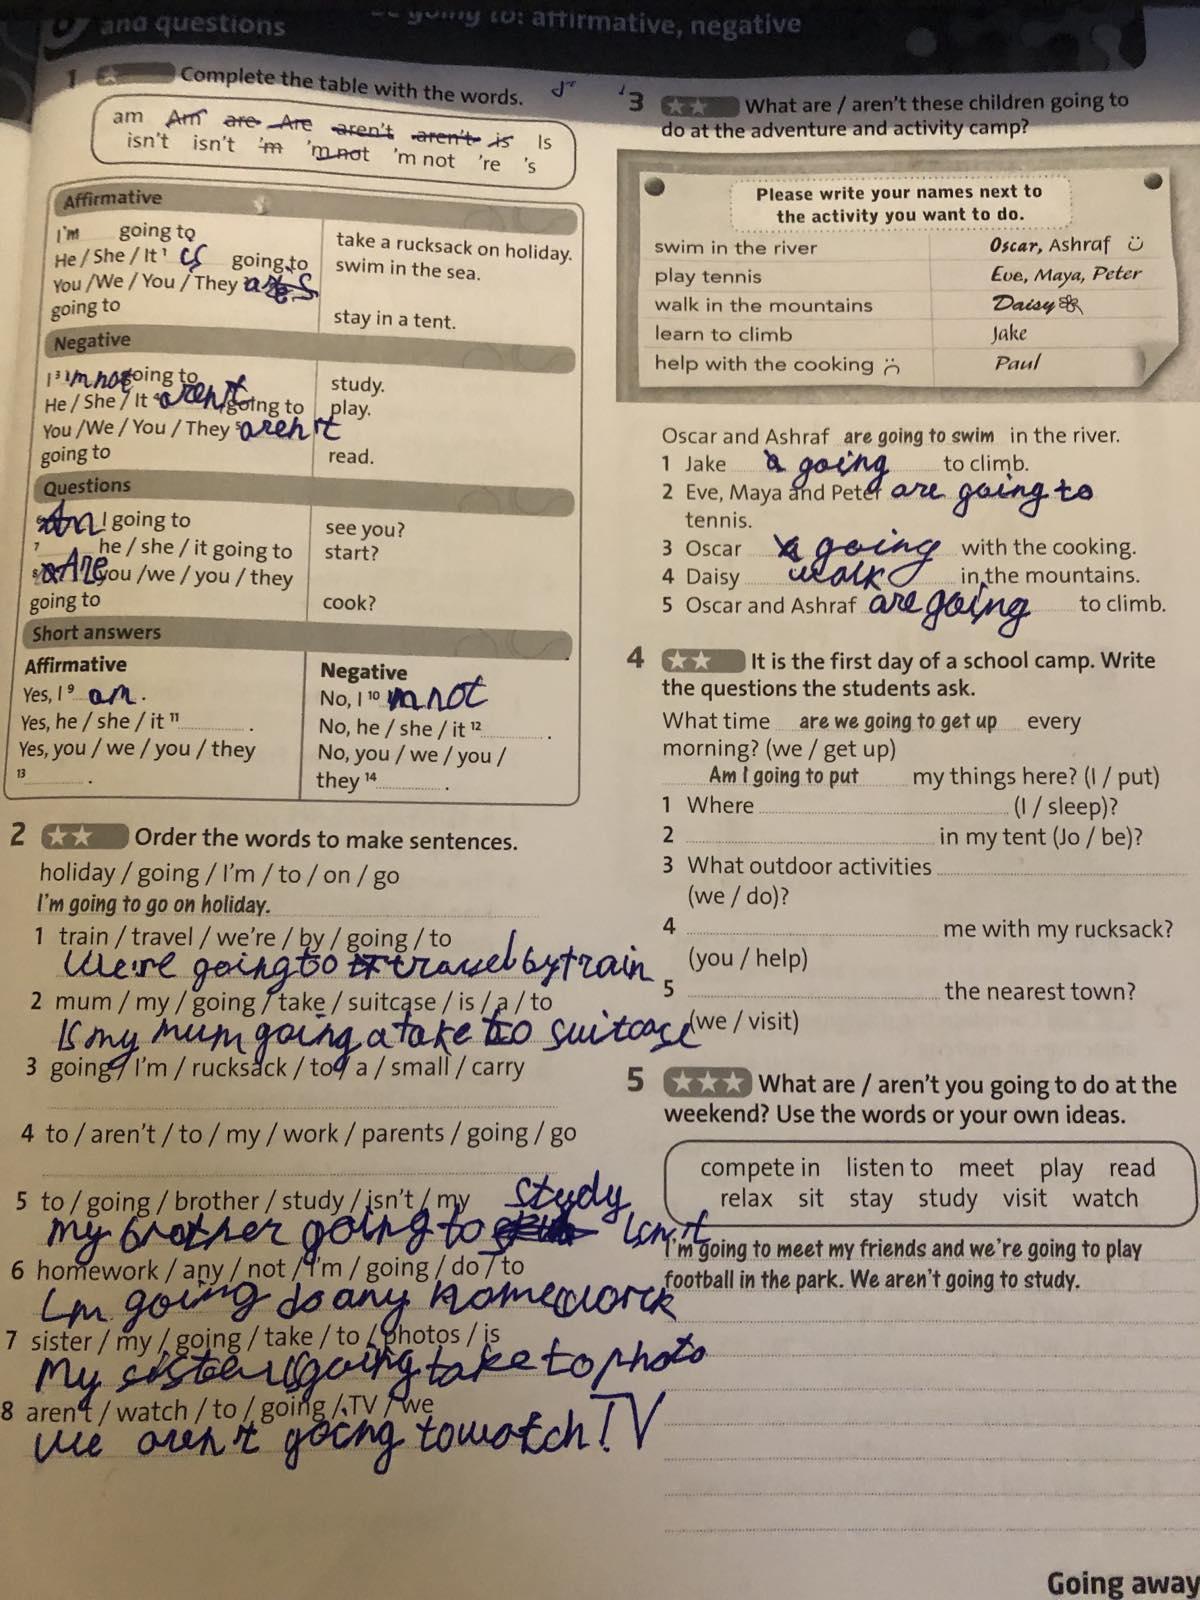 and questions
be going to: affirmative, negative
1 Complete the table with the words.
am Am are Are aren't aren't is Is
isn't isn't 'm 'm not 'm not 're 's
Affirmative
I'm going to
He / She / It 1 is going to
You / We / You / They
going to
take a rucksack on holiday.
swim in the sea.
stay in a tent.
Negative
I 3 'm not going to
He / She / It 4 aren't going to
You / We / You / They 5 aren't
going to
study.
play.
read.
Questions
6 Am I going to
7 he / she / it going to
8 Are you / we / you / they
going to
see you?
start?
cook?
Short answers
Affirmative
Yes, I 9 am.
Yes, he / she / it 11 .
Yes, you / we / you / they
13 .
Negative
No, I 10 'm not
No, he / she / it 12 .
No, you / we / you /
they 14 .
2 Order the words to make sentences.
holiday / going / I'm / to / on / go
I'm going to go on holiday.
1 train / travel / we're / by / going / to
We're going to travel by train
2 mum / my / going / take / suitcase / is / a / to
Is my mum going a take to suitcase
3 going / I'm / rucksack / to / a / small / carry
4 to / aren't / to / my / work / parents / going / go
5 to / going / brother / study / isn't / my
study
my brother going to isn't
6 homework / any / not / I'm / going / do / to
I,m going do any homework
7 sister / my / going / take / to / photos / is
My sister is going take to photo
8 aren't / watch / to / going / TV / we
We aren't going to watch TV
3 What are / aren't these children going to
do at the adventure and activity camp?
Please write your names next to
the activity you want to do.
swim in the river Oscar, Ashraf
play tennis Eve, Maya, Peter
walk in the mountains Daisy
learn to climb Jake
help with the cooking Paul
Oscar and Ashraf are going to swim in the river.
1 Jake going to climb.
2 Eve, Maya and Peter are going to
tennis.
3 Oscar going with the cooking.
4 Daisy walk in the mountains.
5 Oscar and Ashraf are going to climb.
4 It is the first day of a school camp. Write
the questions the students ask.
What time are we going to get up every
morning? (we / get up)
Am I going to put my things here? (I / put)
1 Where (I / sleep)?
2 in my tent (Jo / be)?
3 What outdoor activities
(we / do)?
4 me with my rucksack?
(you / help)
5 the nearest town?
(we / visit)
5 What are / aren't you going to do at the
weekend? Use the words or your own ideas.
compete in listen to meet play read
relax sit stay study visit watch
I'm going to meet my friends and we're going to play
football in the park. We aren't going to study.
Going away